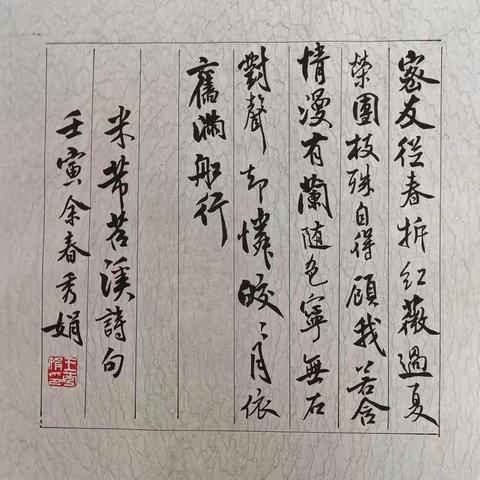 密友從春拆紅薇過夏
榮團枝殊自得顧我若含
情漫有蘭隨色寧無石
對聲却憐皎々月依
舊滿船行
米芾苕溪詩句
壬寅余春秀娟